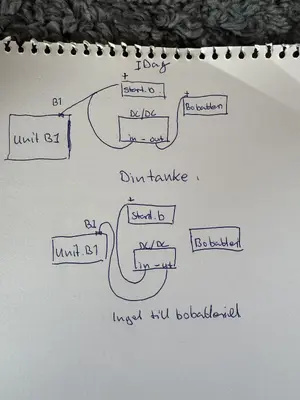 IDag
+
B1
Start.b
+
Bobatteri
DC/DC
in - out
Unit B1
Din tanke.
+
B1
Start.b
DC/DC
Bobatteri
Unit.B1
in - ut
Inget till bobatteriet